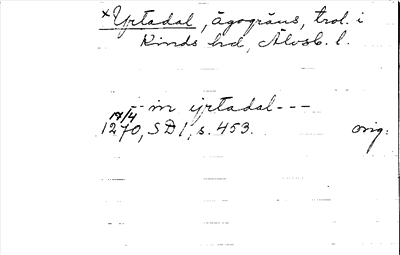 ×Yrtadal, ägogräns, trol. i
Kinds hd, Älvsb. l.
-- in yrtadal ---
17/4
1270, SD 1, s. 453. orig.